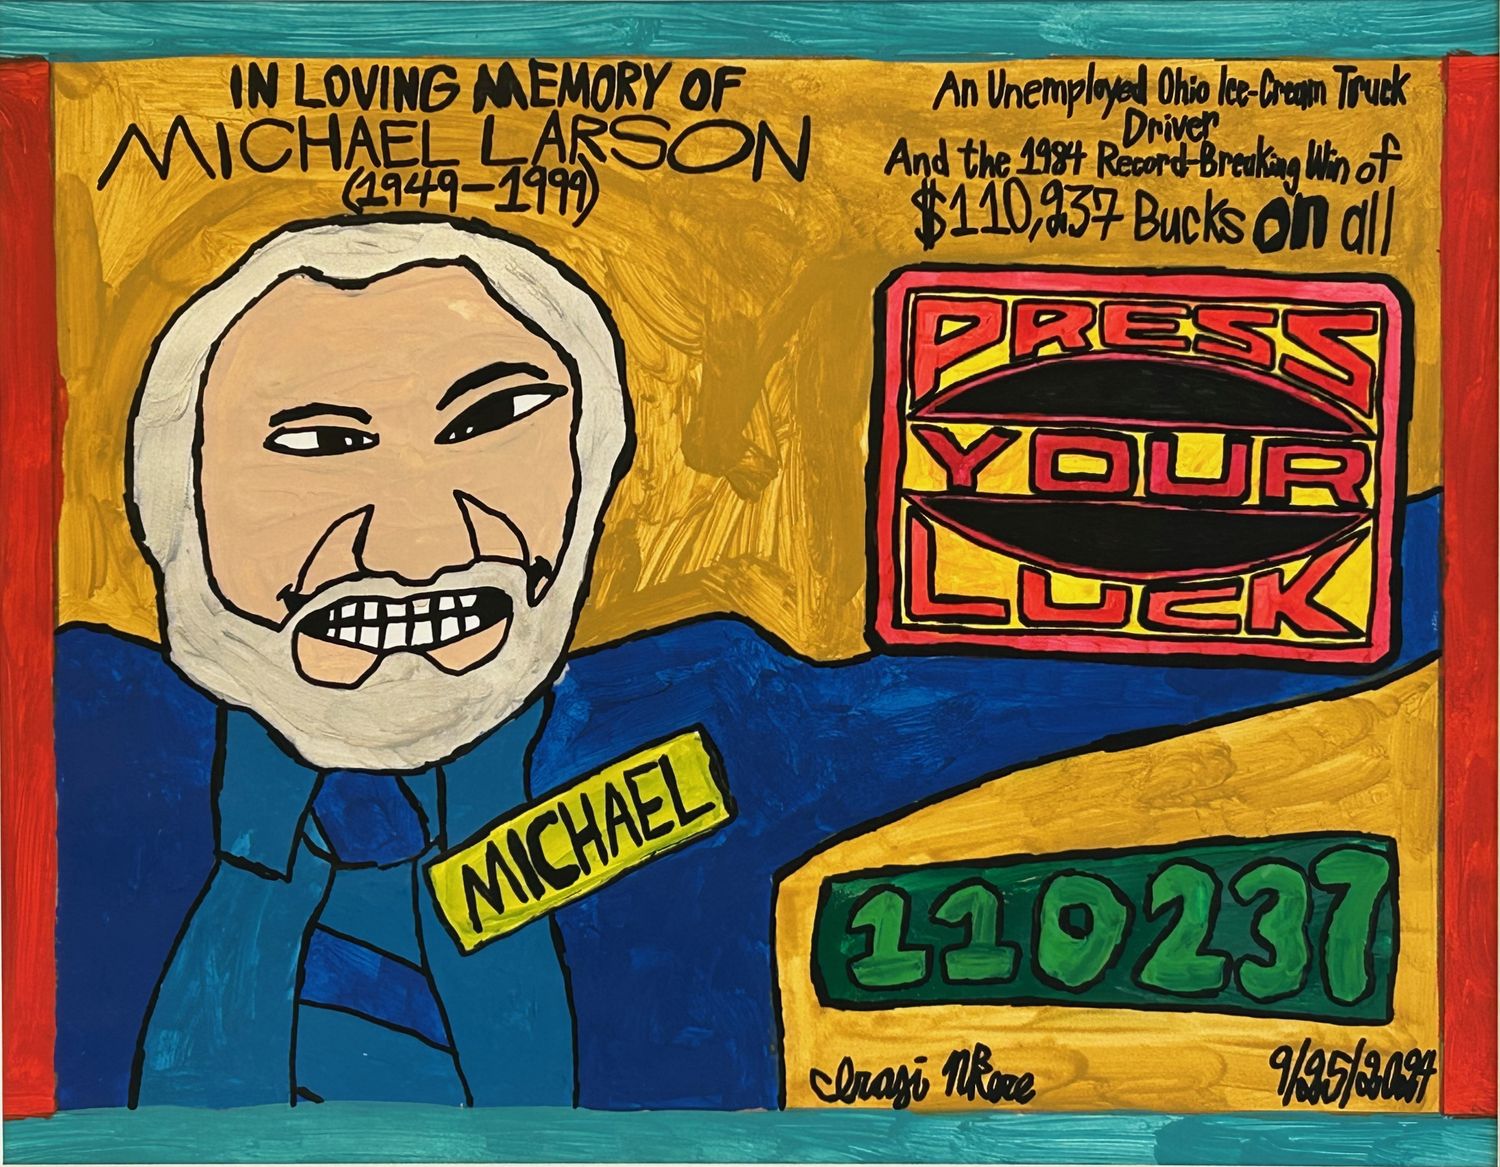 IN LOVING MEMORY OF
MICHAEL LARSON
(1949-1999)
An Unemployed Ohio Ice-Cream Truck
Driver
And the 1984 Record-Breaking Win of
$110,237 Bucks on all
PRESS
YOUR
LUCK
MICHAEL
110237
9/25/2024